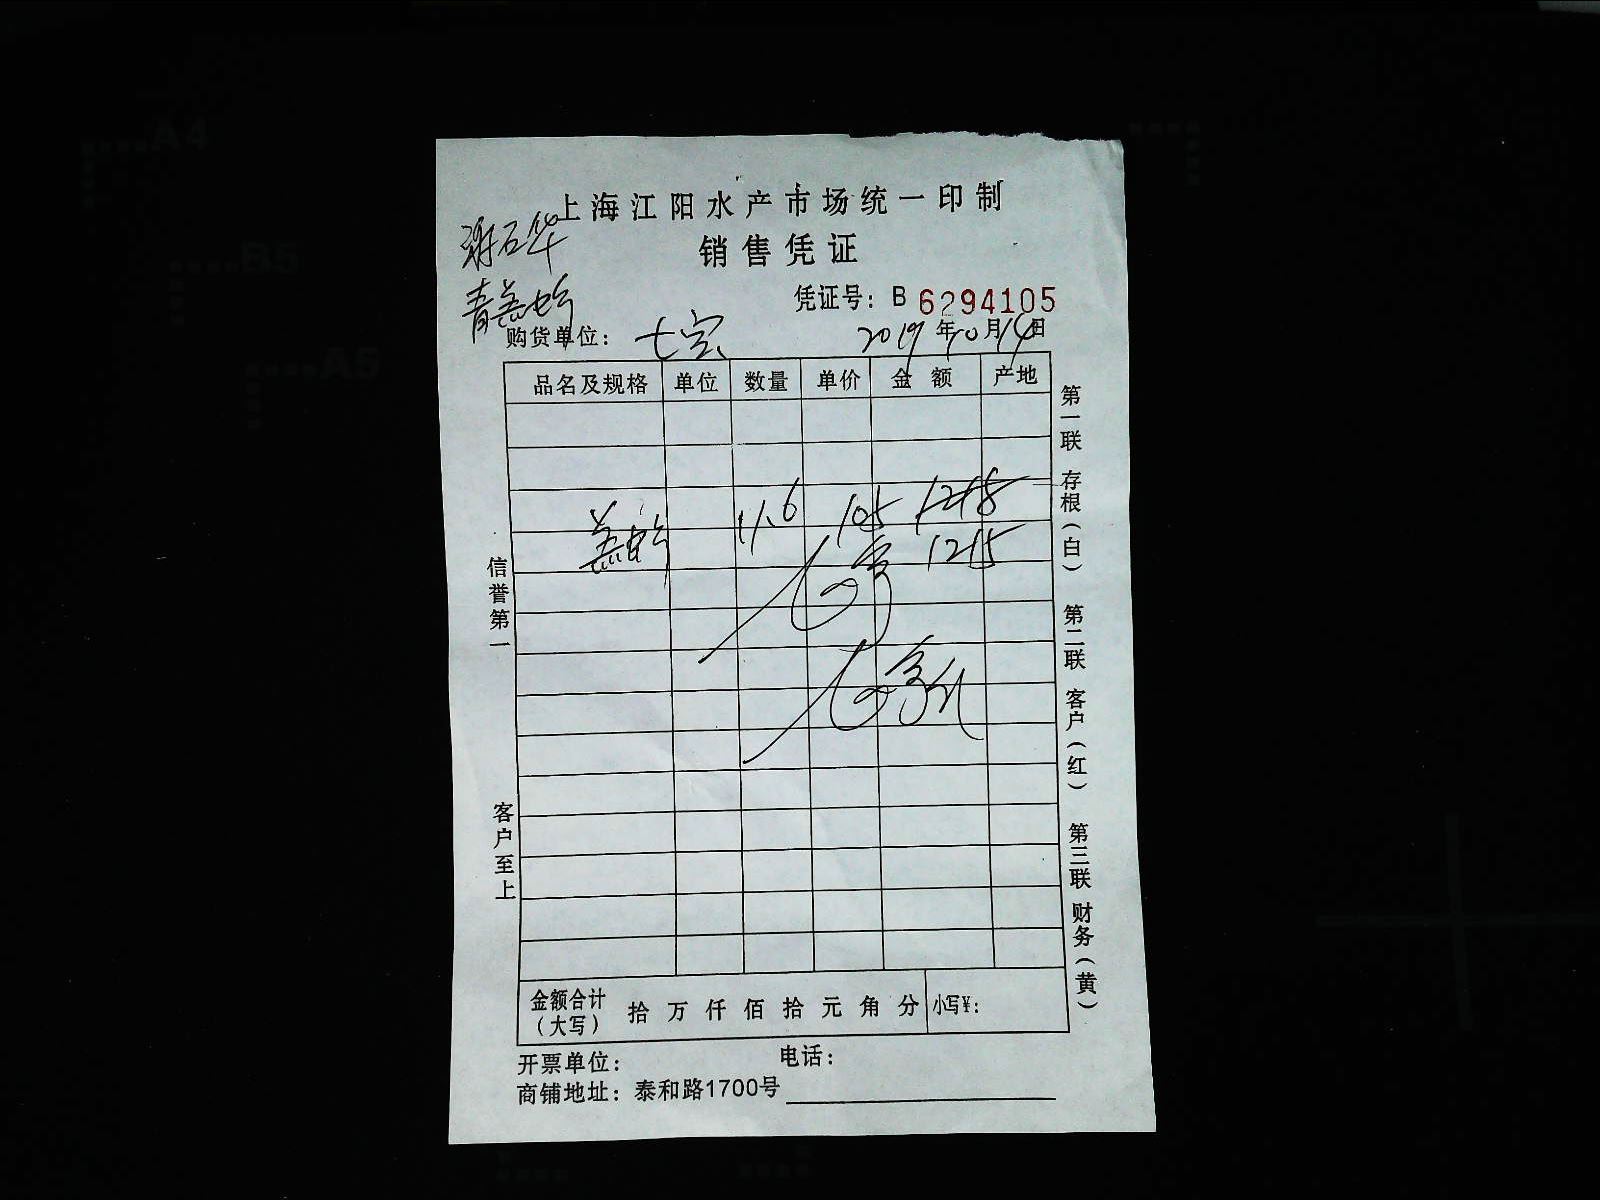 上海江阳水产市场统一印制
销售凭证
谢石华
凭证号：B 6294105
购货单位：七宝 2019年10月14日
品名及规格 单位 数量 单价 金额 产地
11.6 105 1218
1215
信誉第一
客户至上
第一联 存根（白） 第二联 客户（红） 第三联 财务（黄）
金额合计（大写） 拾 万 仟 佰 拾 元 角 分 小写¥：
开票单位： 电话：
商铺地址：泰和路1700号